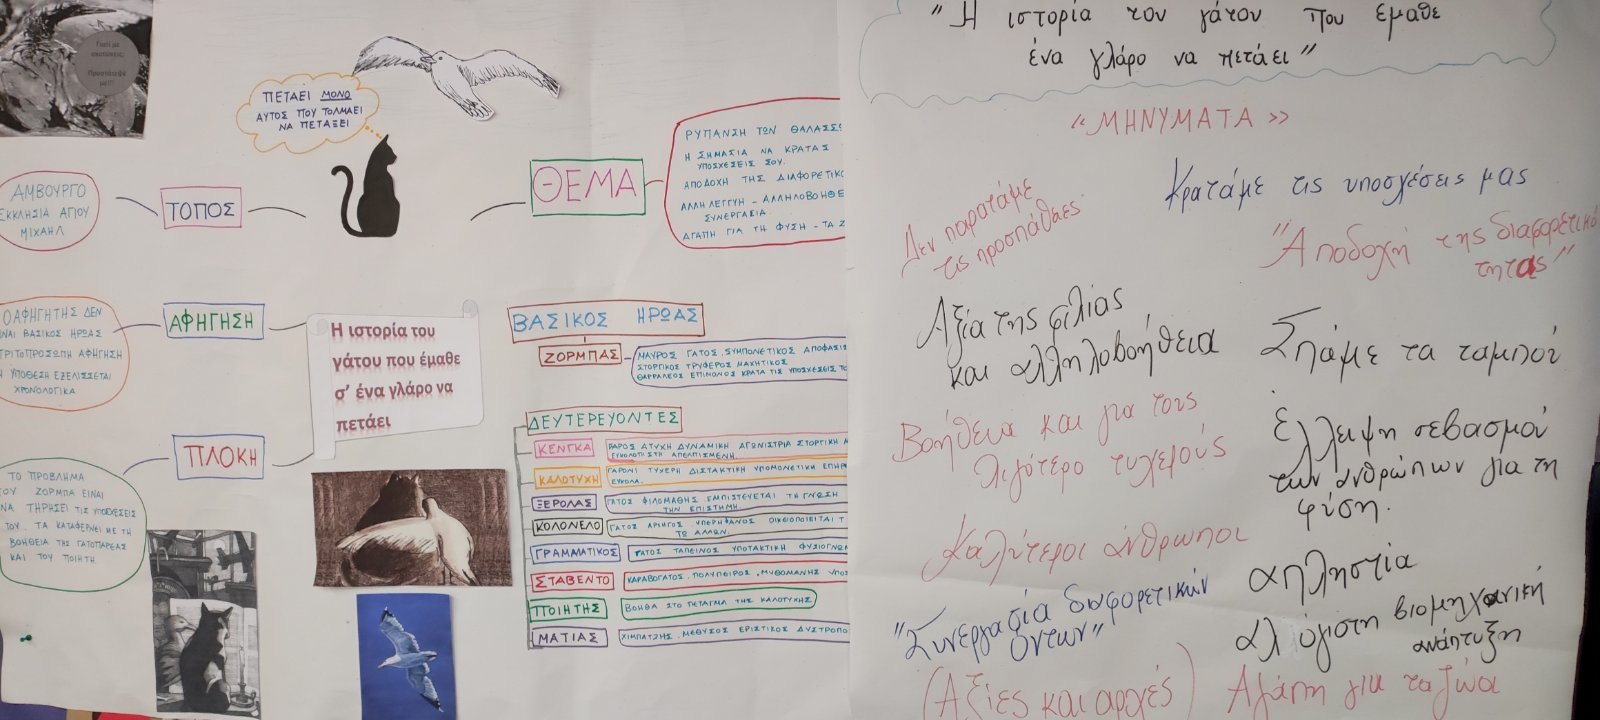 Γιατί με
σκοτώνεις;
Προστάτεψέ
με!!!
ΠΕΤΑΕΙ ΜΟΝΟ
ΑΥΤΟΣ ΠΟΥ ΤΟΛΜΑΕΙ
ΝΑ ΠΕΤΑΞΕΙ
ΘΕΜΑ
ΡΥΠΑΝΣΗ ΤΩΝ ΘΑΛΑΣΣ
Η ΣΗΜΑΣΙΑ ΝΑ ΚΡΑΤΑΣ
ΥΠΟΣΧΕΣΕΙΣ ΣΟΥ.
ΑΠΟΔΟΧΗ ΤΗΣ ΔΙΑΦΟΡΕΤΙΚΟ
ΑΛΛΗΛΕΓΓΥΗ - ΑΛΛΗΛΟΒΟΗΘΕ
ΣΥΝΕΡΓΑΣΙΑ
ΑΓΑΠΗ ΓΙΑ ΤΗ ΦΥΣΗ - ΤΑ Ζ
ΤΟΠΟΣ
ΑΜΒΟΥΡΓΟ
ΕΚΚΛΗΣΙΑ ΑΓΙΟΥ
ΜΙΧΑΗΛ
ΑΦΗΓΗΣΗ
Ο ΑΦΗΓΗΤΗΣ ΔΕΝ
ΙΝΑΙ ΒΑΣΙΚΟΣ ΗΡΩΑΣ
ΤΡΙΤΟΠΡΟΣΩΠΗ ΑΦΗΓΗΣΗ
Η ΥΠΟΘΕΣΗ ΕΞΕΛΙΣΣΕΤΑΙ
ΧΡΟΝΟΛΟΓΙΚΑ
Η ιστορία του
γάτου που έμαθε
σ' ένα γλάρο να
πετάει
ΠΛΟΚΗ
ΤΟ ΠΡΟΒΛΗΜΑ
ΤΟΥ ΖΟΡΜΠΑ ΕΙΝΑΙ
ΝΑ ΤΗΡΗΣΕΙ ΤΙΣ ΥΠΟΣΧΕΣΕΙΣ
ΤΟΥ. ΤΑ ΚΑΤΑΦΕΡΝΕΙ ΜΕ ΤΗ
ΒΟΗΘΕΙΑ ΤΗΣ ΓΑΤΟΠΑΡΕΑΣ
ΚΑΙ ΤΟΥ ΠΟΙΗΤΗ
ΒΑΣΙΚΟΣ ΗΡΩΑΣ
ΖΟΡΜΠΑΣ
ΜΑΥΡΟΣ ΓΑΤΟΣ. ΣΥΜΠΟΝΕΤΙΚΟΣ ΑΠΟΦΑΣΙΣ
ΣΤΟΡΓΙΚΟΣ ΤΡΥΦΕΡΟΣ ΜΑΧΗΤΙΚΟΣ
ΘΑΡΡΑΛΕΟΣ ΕΠΙΜΟΝΟΣ ΚΡΑΤΑ ΤΙΣ ΥΠΟΣΧΕΣΕΙΣ ΤΟ
ΔΕΥΤΕΡΕΥΟΝΤΕΣ
ΚΕΝΓΚΑ
ΓΛΑΡΟΣ ΑΤΥΧΗ ΔΥΝΑΜΙΚΗ ΑΓΩΝΙΣΤΡΙΑ ΣΤΟΡΓΙΚΗ
ΕΥΚΟΛΟΠΙΣΤΗ ΑΠΕΛΠΙΣΜΕΝΗ
ΚΑΛΟΤΥΧΗ
ΓΛΑΡΟΝΙ ΤΥΧΕΡΗ ΔΙΣΤΑΚΤΙΚΗ ΥΠΟΜΟΝΕΤΙΚΗ
ΕΥΚΟΛΑ.
ΞΕΡΟΛΑΣ
ΓΑΤΟΣ ΦΙΛΟΜΑΘΗΣ ΕΜΠΙΣΤΕΥΕΤΑΙ ΤΗ ΓΝΩΣΗ
ΤΗΝ ΕΠΙΣΤΗΜΗ
ΚΟΛΟΝΕΛΟ
ΓΑΤΟΣ ΑΡΧΗΓΟΣ ΥΠΕΡΗΦΑΝΟΣ ΟΙΚΕΙΟΠΟΙΕΙΤΑΙ Τ
ΤΩ ΑΛΛΩΝ.
ΓΡΑΜΜΑΤΙΚΟΣ
ΓΑΤΟΣ ΤΑΠΕΙΝΟΣ ΥΠΟΤΑΚΤΙΚΗ ΦΥΣΙΟΓΝΩΜ
ΣΤΑΒΕΝΤΟ
ΚΑΡΑΒΟΓΑΤΟΣ. ΠΟΛΥΠΕΙΡΟΣ. ΜΥΘΟΜΑΝΗΣ ΥΠΟΣ
ΠΟΙΗΤΗΣ
ΒΟΗΘΑ ΣΤΟ ΠΕΤΑΓΜΑ ΤΗΣ ΚΑΛΟΤΥΧΗΣ
ΜΑΤΙΑΣ
ΧΙΜΠΑΤΖΗΣ. ΜΕΘΥΣΟΣ ΕΡΙΣΤΙΚΟΣ ΔΥΣΤΡΟΠΟ
"Η ιστορία του γάτου που έμαθε
ένα γλάρο να πετάει"
«ΜΗΝΥΜΑΤΑ»
Κρατάμε τις υποσχέσεις μας
Δεν παρατάμε
τις προσπάθειες
"Αποδοχή της διαφορετικό
τητας"
Αξία της φιλίας
και αλληλοβοήθεια
Σπάμε τα ταμπού
Βοήθεια και για τους
λιγότερο τυχερούς
Έλλειψη σεβασμού
των ανθρώπων για τη
φύση.
Καλύτεροι άνθρωποι
απληστία
"Συνεργασία διαφορετικών
όντων"
αλόγιστη βιομηχανική
ανάπτυξη
(Αξίες και αρχές)
Αγάπη για τα ζώα